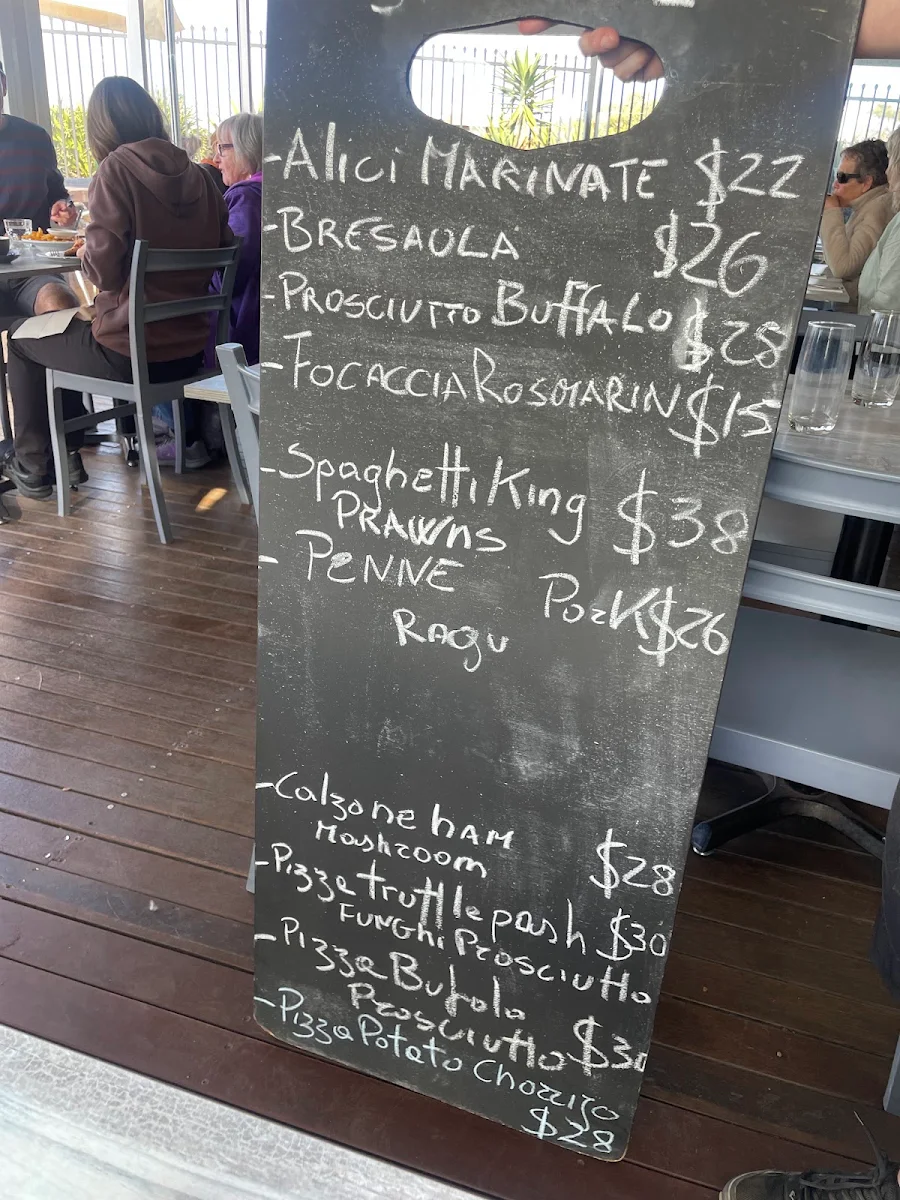 -Alici MARINATE $22
-BRESAULA $26
-PROSCIUTTO BuffALO $28
-FOCACCIA ROSMARIN $15
-Spaghetti King $38
PRAWNS
- PENNE Pork $26
RAgu
-Calzone hAM
Mashroom $28
-Pizza truttle pash $30
FUNGhi PROSCIUTTO
-Pizza Bufala
PROSCIUTTO $30
-Pizza Potato Chorrizo
$28